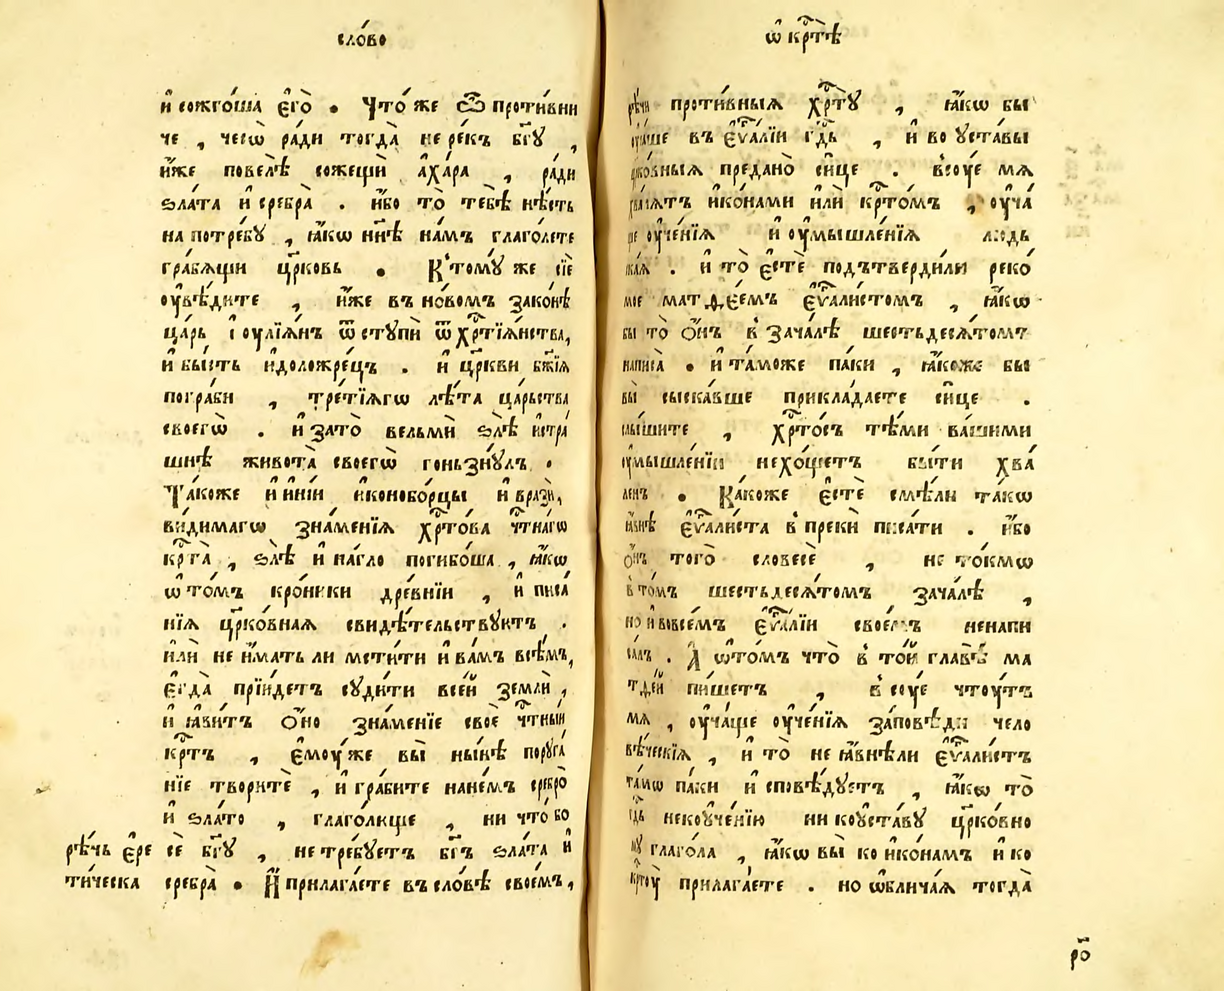 сло́во
и҆ сожго́ша є҆го̀ . Что́ же ѿ проти́вни
че , чесѡ̀ ра́ди тогда̀ не ре́къ бг҃у ,
и҆́же повелѣ̀ сожещѝ а҆ха́ра , ра́ди
ѕла́та и҆ сребра̀ . и҆́бо то̀ тебѣ̀ нѣ́сть
на потре́бу , ꙗ҆́кѡ нн҃ѣ на́мъ глаго́лете
гра́бѧщи цр҃ковь . К̾ тому́ же сїѐ
оу҆вѣ́дите , и҆́же въ но́вомъ зако́нѣ
ца́рь і҆оулїѧ́нъ ѿступѝ ѿ хрⷭ҇тїѧ́нства,
и҆ бы́сть и҆доложре́цъ . и҆ цр҃кви бж҃їѧ
погра́би , тре́тїѧгѡ лѣ́та ца́рьства
своегѡ̀ . и҆ зато̀ вельмѝ ѕлѣ̀ и҆ стра́
шнѣ живота̀ своегѡ̀ гоньзнꙋ́лъ .
Та́коже и҆ и҆ні́и и҆конобо́рцы и҆ врази̑,
ви́димагѡ зна́менїѧ хрⷭ҇то́ва чтⷭ҇на́гѡ
крⷭ҇та̀ , ѕлѣ̀ и҆ на́гло погибо́ша , ꙗ҆́кѡ
ѡ҆ то́мъ кро́ники дре́внїи , и҆ писа́
нїѧ цр҃ко́внаѧ свидѣ́тельствуютъ .
и҆лѝ не и҆́мать ли мсти́ти и҆ ва́мъ всѣ́мъ,
є҆гда̀ прїи́детъ суди́ти все́й землѝ ,
и҆ ꙗ҆ви́тъ ѻ҆́но зна́менїе своѐ чтⷭ҇ны́й
крⷭ҇тъ , є҆мо́уже вы̀ ны́нѣ поруга́
нїе творитѐ , и҆ гра́бите на не́мъ сребро̀
и҆ ѕла́то , глаго́люще , ни что́ бо
рѣ́чь є҆ре сѐ бг҃у , не тре́буетъ бг҃ъ ѕла́та и҆
ти́ческа сребра̀ . И҆ прилага́ете въ сло́вѣ свое́мъ,
ѡ҆ крⷭ҇тѣ̀
рѣ́чи проти́вныѧ хрⷭ҇ту̀ , ꙗ҆́кѡ бы
въ є҆ѵⷢ҇а́лїи гдⷭ҇ь , и҆ во уста́вы
предано̀ си́це . всу́е мѧ
и҆ко́нами и҆лѝ крⷭ҇то́мъ , оу҆ча́
ще оу҆че́нїѧ и҆ оу҆мышле́нїѧ люде́
ская . и҆ то̀ є҆стѐ подътверди́ли реко́
мое матѳе́емъ є҆ѵⷢ҇али́стомъ , ꙗ҆́кѡ
бы то̀ ѻ҆́нъ в̾ зача́лѣ шестьдесѧ́томъ
написа̀ . и҆ та́може па́ки , ꙗ҆́коже бы
вы̀ сыска́вше прикла́даете си́це .
слы́шите , хрⷭ҇то́съ тѣ́ми ва́шими
оу҆мышле́нїи нехо́щетъ бы́ти хва́
ленъ . Ка́коже є҆стѐ смѣ́ли та́кѡ
ꙗ҆́внѣ є҆ѵⷢ҇али́ста в̾прекѝ писа́ти . и҆́бо
ѻ҆́нъ того̀ словесѐ , не то́кмѡ
в̾ то́мъ шестьдесѧ́томъ зача́лѣ ,
но и҆ во все́мъ є҆ѵⷢ҇а́лїи свое́мъ ненапи
са́лъ . А҆ ѡ҆ то́мъ что̀ в̾ то́й главѣ̀ ма
тѳе́й пи́шетъ , в̾ су́е чтоу́тъ
мѧ , оу҆ча́ще оу҆че́нїѧ за́повѣди чело
вѣ́ческїѧ , и҆ то̀ не ꙗ҆внѣ́ли є҆ѵⷢ҇али́стъ
та́мѡ па́ки и҆сповѣ́дуетъ , ꙗ҆́кѡ то̀
гдⷭ҇ь не коуче́нїю ни коуста́ву цр҃ко́вно
му глаго́ла , ꙗ҆́кѡ вы̀ ко и҆ко́намъ и҆ ко
крⷭ҇ту̀ прилага́ете . но ѡ҆блича́ѧ тогда̀
ро҃